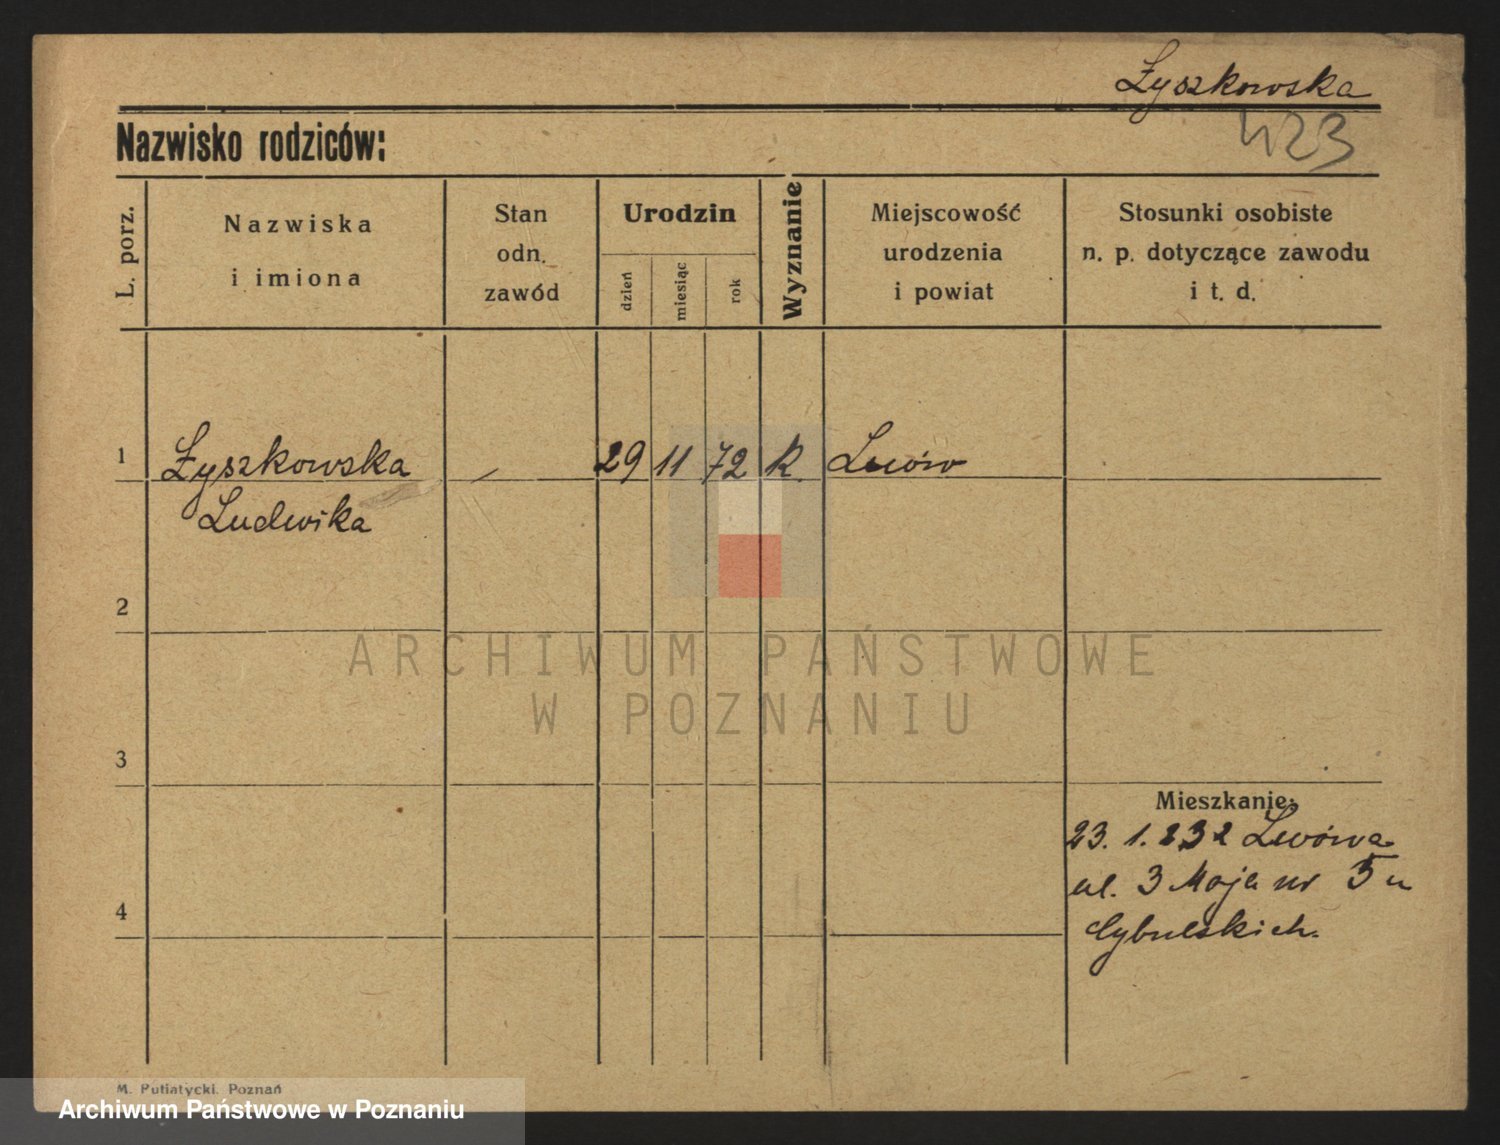 Łyszkowska
423
Nazwisko rodziców:
L. porz.
Nazwiska
i imiona
Stan
odn.
zawód
Urodzin
dzień
miesiąc
rok
Wyznanie
Miejscowość
urodzenia
i powiat
Stosunki osobiste
n. p. dotyczące zawodu
i t. d.
1 Łyszkowska 29 11 72 k. Lwów
Ludwika
2
ARCHIWUM PAŃSTWOWE
W POZNANIU
3
Mieszkanie:
23. 1. 232 Lwowa
ul. 3 Maja nr 5 u
Cybulskich.
4
M. Putiatycki. Poznań
Archiwum Państwowe w Poznaniu